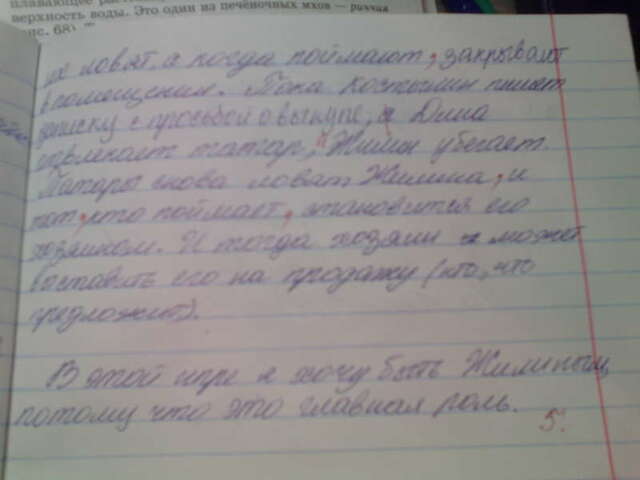 плавающее расте
верхность воды. Это один из печёночных мхов — риччия
рис. 68)
их ловят, а когда поймают, закрывают
в помещении. Пока Костылин пишет
записку с просьбой о выкупе, а Дина
отвлекает татар, Жилин убегает.
Татары снова ловят Жилина, и
тот, кто поймает, становится его
хозяином. И тогда хозяин может
выставить его на продажу (кто, что
предложит).
В этой игре я хочу быть Жилиным,
потому что это главная роль.
5.